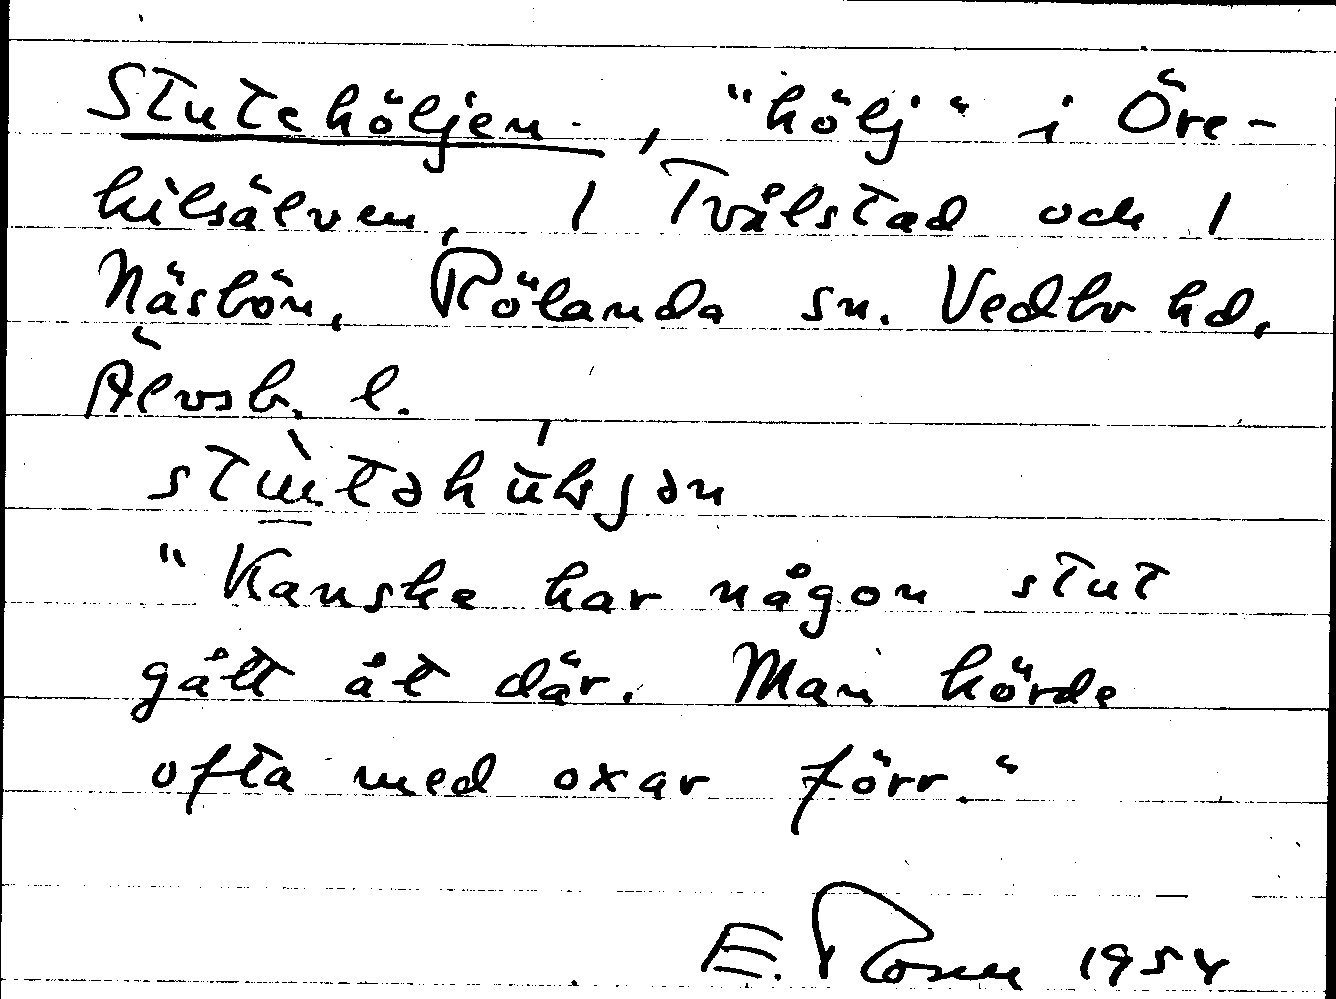 Stutehöljen, "hölj" i Öre-
kilsälven, 1 Tvålstad och 1
Näsbön, Rölanda sn. Vedbo hd,
Älvsb. l.
"Kanske har någon stut
gått åt där. Man körde
ofta med oxar förr."
E. Rosen 1954